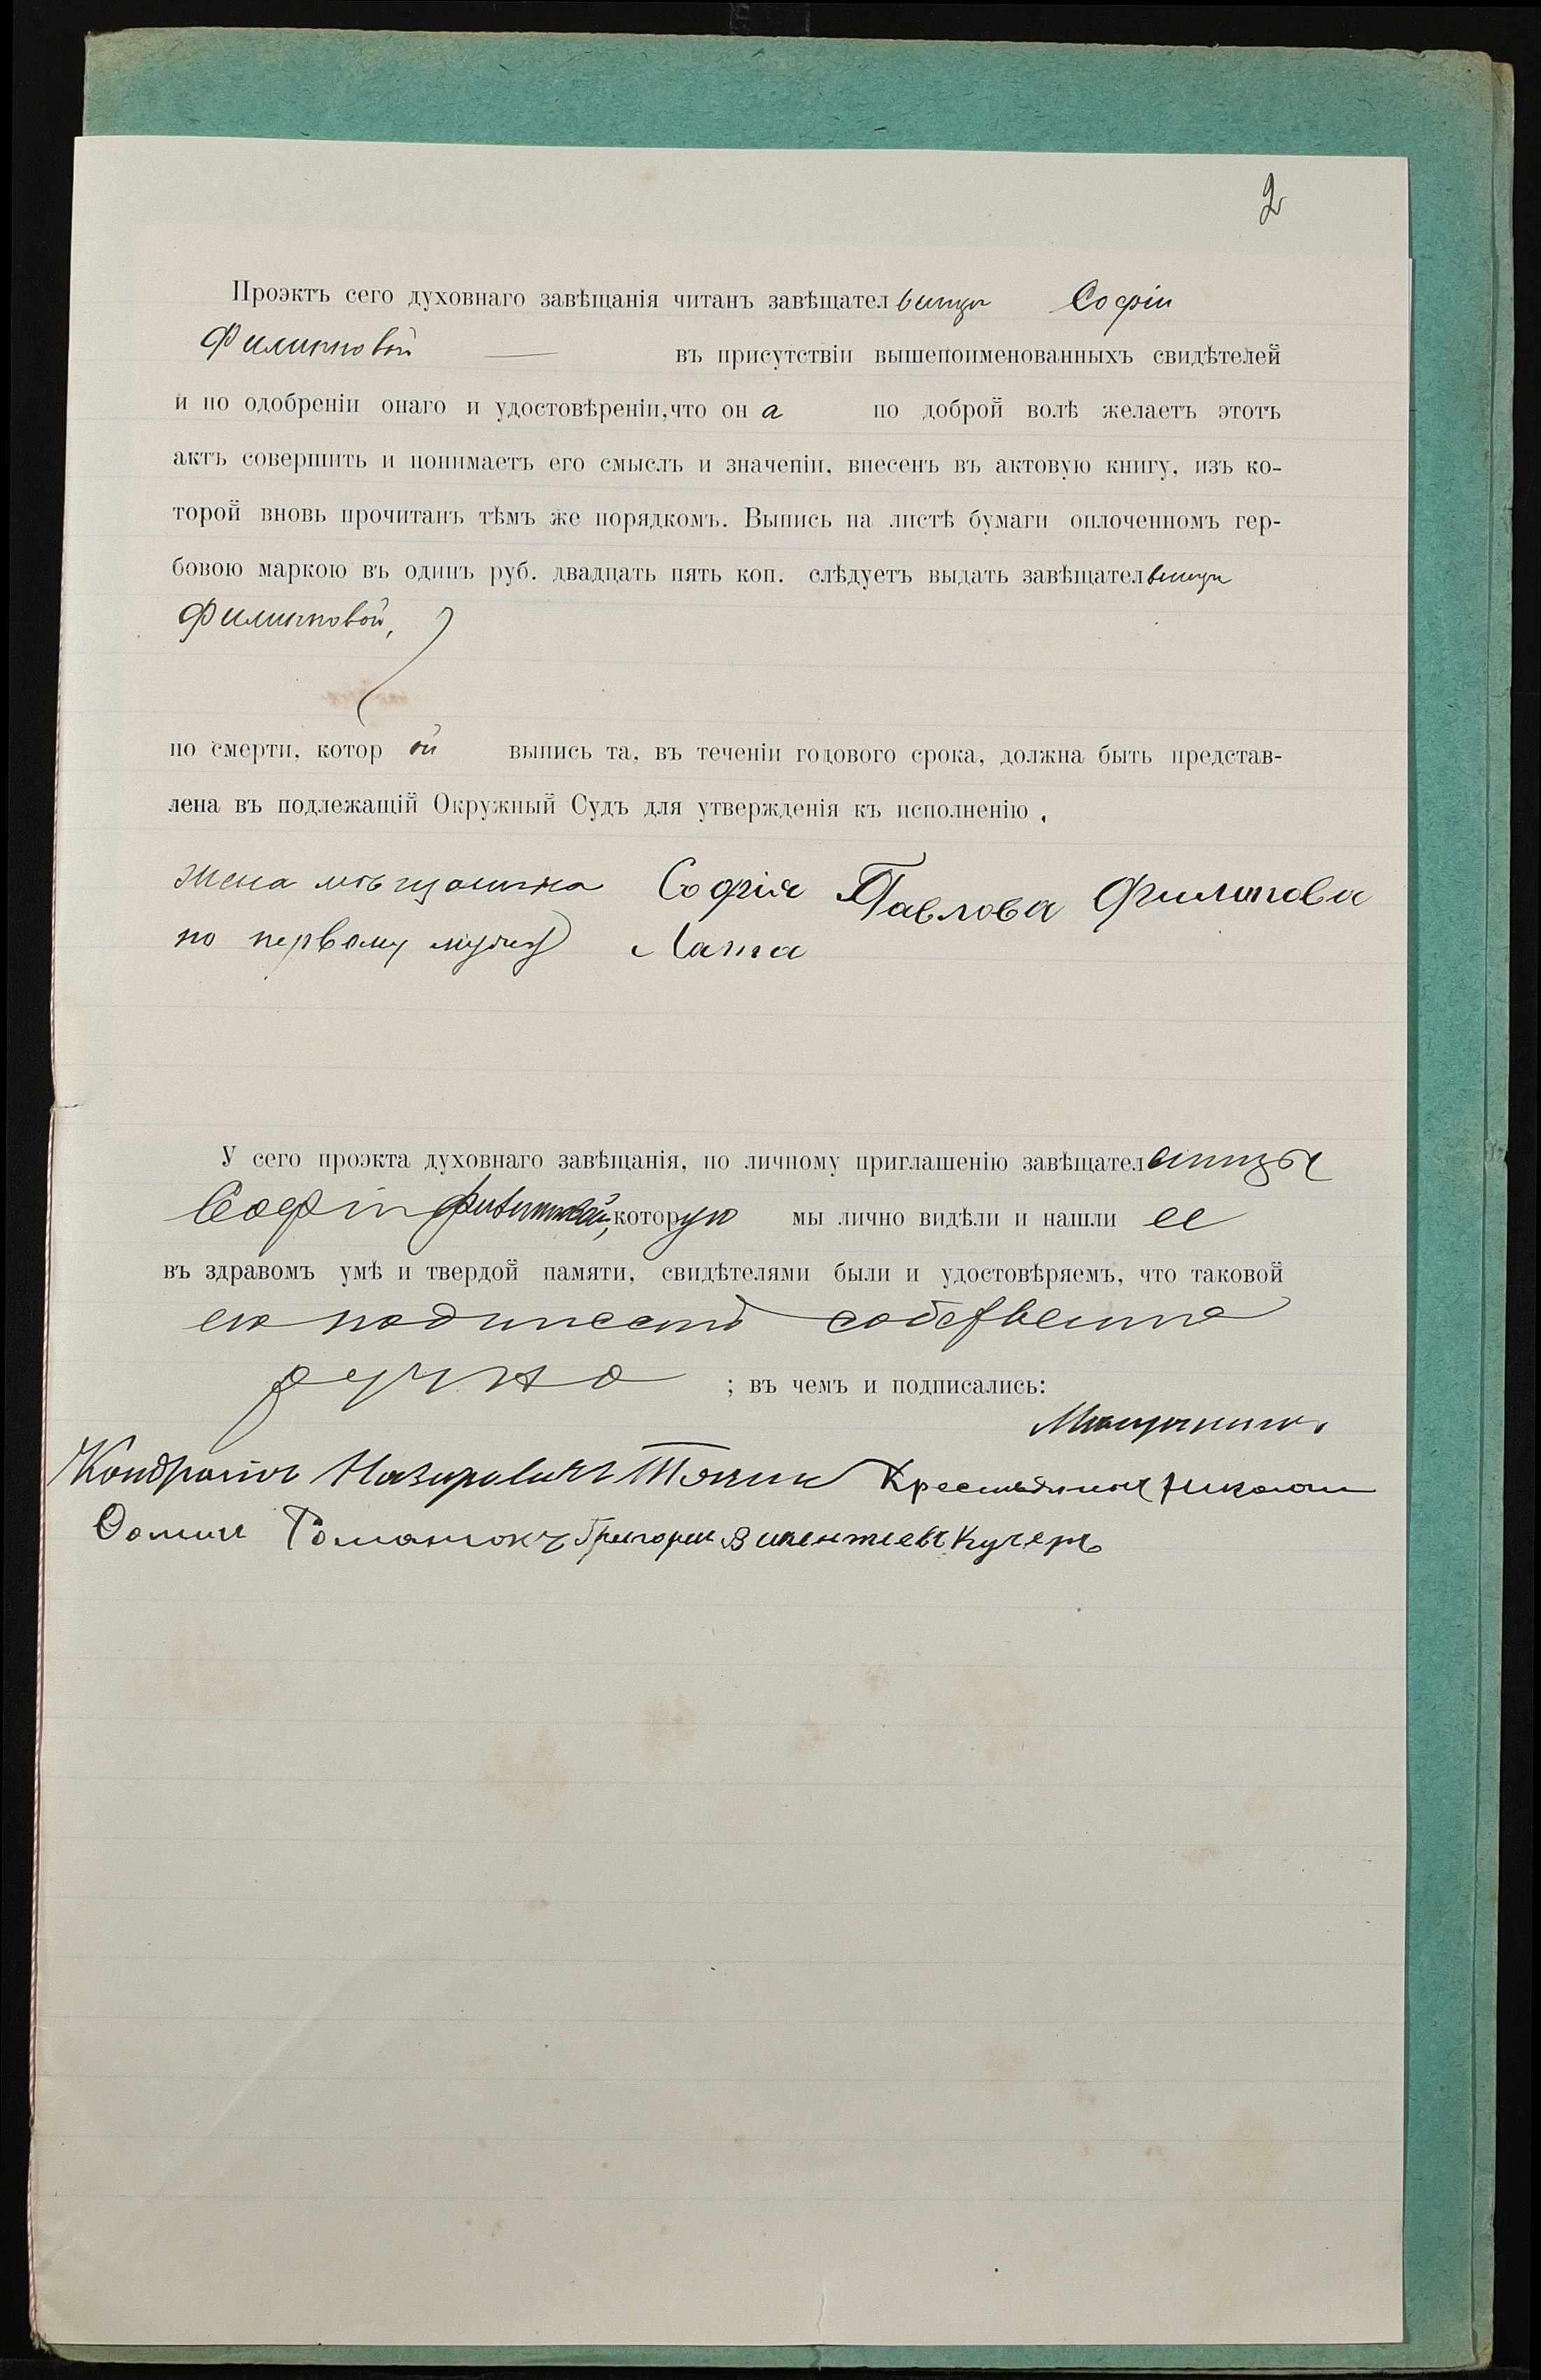 2
Проэктъ сего духовнаго завѣщанія читанъ завѣщательницѣ Софіи
Филипповой — въ присутствіи вышепоименованныхъ свидѣтелей
и по одобреніи онаго и удостовѣреніи, что она по доброй волѣ желаетъ этотъ
актъ совершить и понимаетъ его смыслъ и значеніи, внесенъ въ актовую книгу, изъ ко-
торой вновь прочитанъ тѣмъ же порядкомъ. Выпись на листѣ бумаги оплоченномъ гер-
бовою маркою въ одинъ руб. двадцать пять коп. слѣдуетъ выдать завѣщательницѣ
Филипповой,
по смерти, которой выпись та, въ теченіи годового срока, должна быть представ-
лена въ подлежащій Окружный Судъ для утвержденія къ исполненію.
Жена мѣщанина Софія Павлова Филипова
по первому мужу Лата
У сего проэкта духовнаго завѣщанія, по личному приглашенію завѣщателницы
Софіи Филипповой, которую мы лично видѣли и нашли ее
въ здравомъ умѣ и твердой памяти, свидѣтелями были и удостовѣряемъ, что таковой
ею подписанъ собственно
ручно ; въ чемъ и подписались:
Мещанинъ
Кондратъ Назировичъ Крестьянинъ Николай
Фоминъ Романюкъ Григорий Викентиевъ Кучеръ